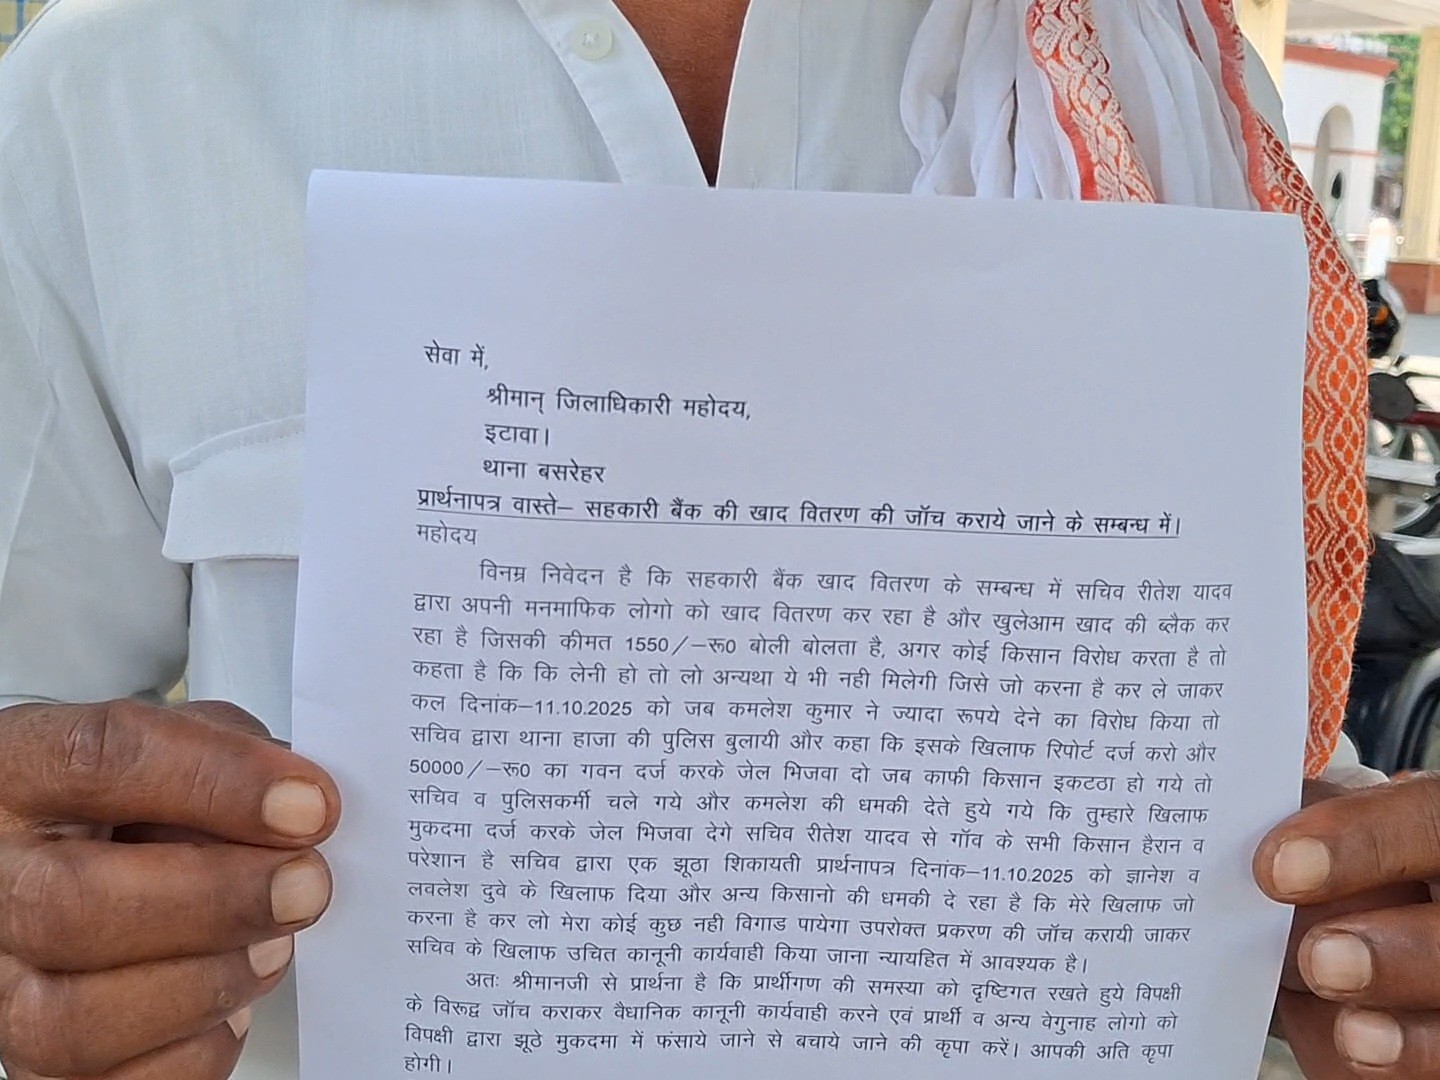 सेवा में,
श्रीमान् जिलाधिकारी महोदय,
इटावा।
थाना बसरेहर
प्रार्थनापत्र वास्ते– सहकारी बैंक की खाद वितरण की जॉच कराये जाने के सम्बन्ध में।
महोदय
विनम्र निवेदन है कि सहकारी बैंक खाद वितरण के सम्बन्ध में सचिव रीतेश यादव
द्वारा अपनी मनमाफिक लोगो को खाद वितरण कर रहा है और खुलेआम खाद की ब्लैक कर
रहा है जिसकी कीमत 1550/–रू0 बोली बोलता है, अगर कोई किसान विरोध करता है तो
कहता है कि कि लेनी हो तो लो अन्यथा ये भी नही मिलेगी जिसे जो करना है कर ले जाकर
कल दिनांक–11.10.2025 को जब कमलेश कुमार ने ज्यादा रूपये देने का विरोध किया तो
सचिव द्वारा थाना हाजा की पुलिस बुलायी और कहा कि इसके खिलाफ रिपोर्ट दर्ज करो और
50000/–रू0 का गवन दर्ज करके जेल भिजवा दो जब काफी किसान इकटठा हो गये तो
सचिव व पुलिसकर्मी चले गये और कमलेश की धमकी देते हुये गये कि तुम्हारे खिलाफ
मुकदमा दर्ज करके जेल भिजवा देगे सचिव रीतेश यादव से गॉव के सभी किसान हैरान व
परेशान है सचिव द्वारा एक झूठा शिकायती प्रार्थनापत्र दिनांक–11.10.2025 को ज्ञानेश व
लवलेश दुवे के खिलाफ दिया और अन्य किसानो की धमकी दे रहा है कि मेरे खिलाफ जो
करना है कर लो मेरा कोई कुछ नही विगाड पायेगा उपरोक्त प्रकरण की जॉच करायी जाकर
सचिव के खिलाफ उचित कानूनी कार्यवाही किया जाना न्यायहित में आवश्यक है।
अतः श्रीमानजी से प्रार्थना है कि प्रार्थीगण की समस्या को दृष्टिगत रखते हुये विपक्षी
के विरूद्व जॉच कराकर वैधानिक कानूनी कार्यवाही करने एवं प्रार्थी व अन्य वेगुनाह लोगो को
विपक्षी द्वारा झूठे मुकदमा में फंसाये जाने से बचाये जाने की कृपा करें। आपकी अति कृपा
होगी।